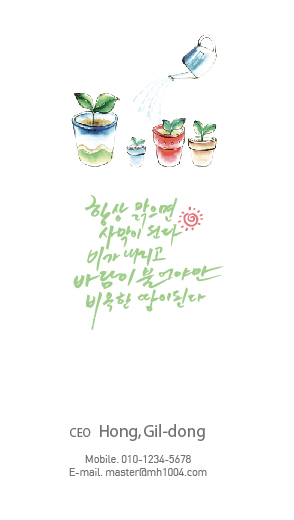 항상 맑으면
사막이 된다
비가 내리고
바람이 불어야만
비옥한 땅이된다
CEO Hong,Gil-dong
Mobile. 010-1234-5678
E-mail. master@mh1004.com